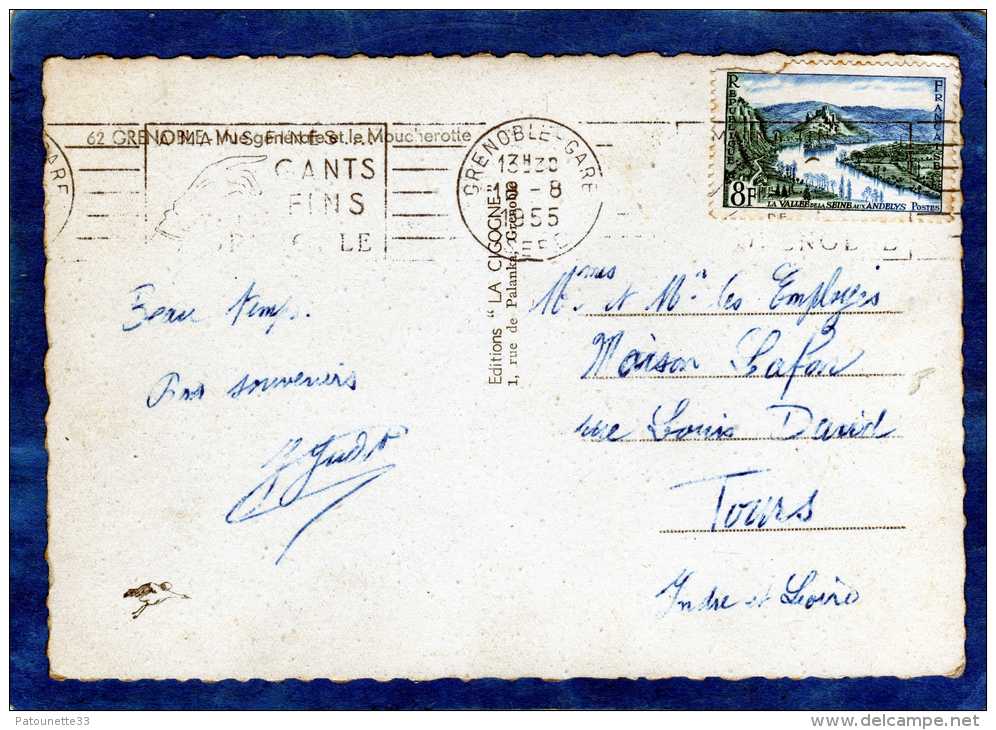 62 GRENOBLE. Vue générale et le Moucherotte
MAINS FINES...
GANTS
FINS
GRENOBLE-GARE
13H30
-8
1955
ISERE
RÉPUBLIQUE FRANÇAISE
8F
LA VALLÉE DE LA SEINE AUX ANDELYS POSTES
Editions "LA CIGOGNE"
1, rue de Palanka, Grenoble
Beau temps.
Bons souvenirs
Mmes et Mrs les Employés
Maison
rue Louis David
Tours
Indre et Loire
Patounette33
www.delcampe.net